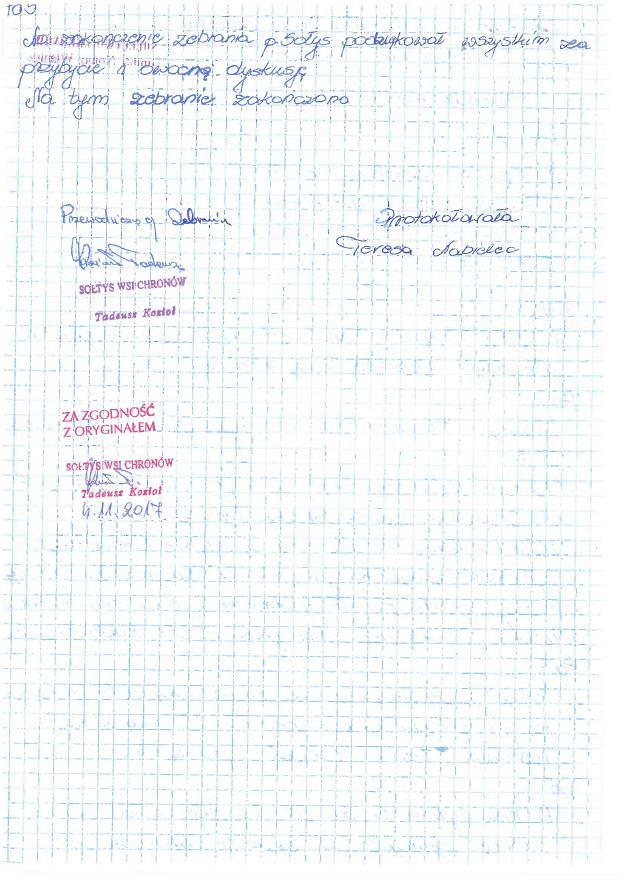 109
Na zakończenie zebrania p Sołtys podziękował wszystkim za
przybycie i owocną dyskusję
Na tym zebranie zakończono
Przewodniczący Zebrania
Protokołowała
Kozioł Tadeusz
Teresa
SOŁTYS WSI CHRONÓW
Tadeusz Kozioł
ZA ZGODNOŚĆ
Z ORYGINAŁEM
SOŁTYS WSI CHRONÓW
Tadeusz Kozioł
4.11.2017